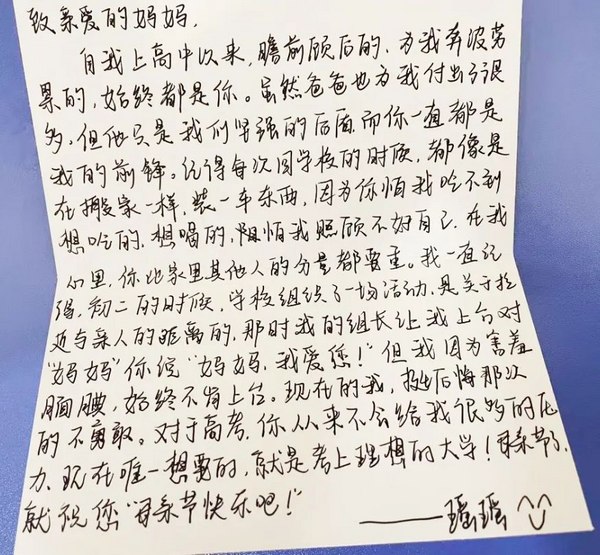 致亲爱的妈妈,
自我上高中以来,瞻前顾后的,为我奔波劳
累的,始终都是你。虽然爸爸也为我付出了很
多,但他只是我们坚强的后盾,而你一直都是
我的前锋。记得每次回学校的时候,都像是
在搬家一样,装一车东西,因为你怕我吃不到
想吃的,想喝的,怕我照顾不好自己,在我
心里,你比家里其他人的分量都要重。我一直记
得,初二的时候,学校组织了一场活动,是关于拉
近与亲人的距离的,那时我的组长让我上台对
"妈妈"你说"妈妈,我爱您!"但我因为害羞
腼腆,始终不肯上台。现在的我,后悔那次
的不勇敢。对于高考,你从来不会给我很多的压
力、现在唯一想要的,就是考上理想的大学!母亲节了,
就祝您"母亲节快乐吧!"
——瑶瑶